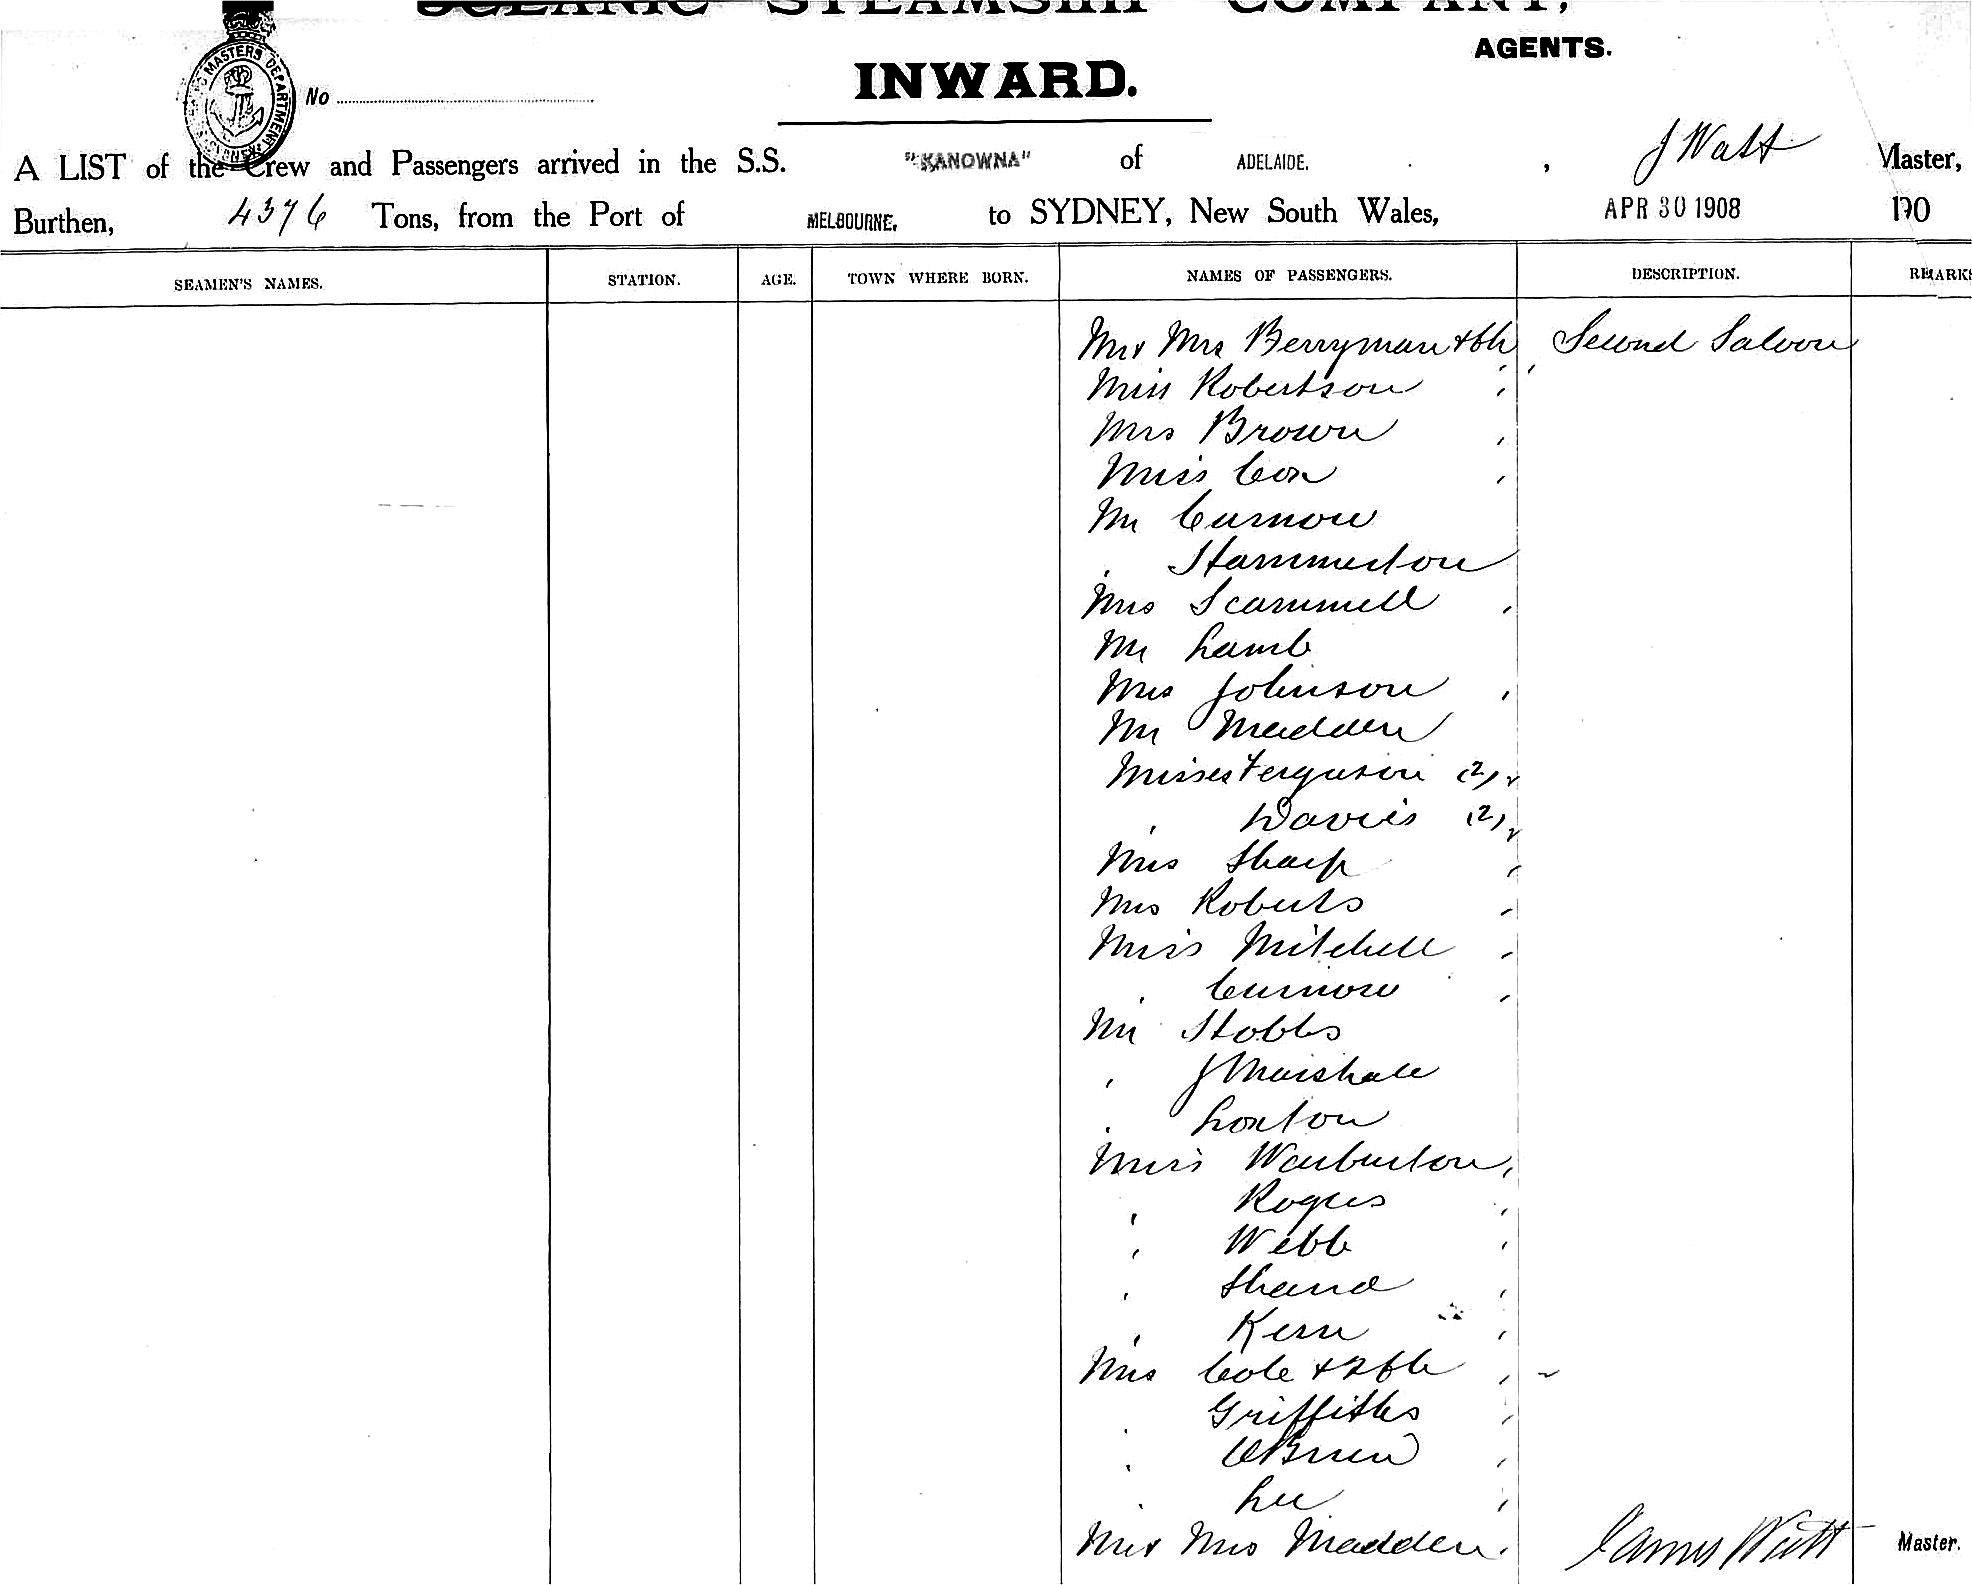 OCEANIC STEAMSHIP COMPANY,
AGENTS.
INWARD.
MASTERS DEPARTMENT
No
A LIST of the Crew and Passengers arrived in the S.S. "KANOWNA" of ADELAIDE. , J Watt Master,
Burthen, 4376 Tons, from the Port of MELBOURNE, to SYDNEY, New South Wales, APR 30 1908 190
SEAMEN'S NAMES. STATION. AGE. TOWN WHERE BORN. NAMES OF PASSENGERS. DESCRIPTION. REMARKS
Mr & Mrs Berryman & ch Second Saloon
Miss Robertson
Mrs Brown
Miss Cox
Mr Curnow
" Hammerton
Mrs Scammell
Mr Lamb
Mrs Johnson
Mr Madden
Misses Ferguson (2)
" Davies (2)
Mrs Sharp
Mrs Roberts
Miss Mitchell
" Curnow
Mr Stobbs
" J Marshall
" Loxton
Miss Warburton
" Rogers
" Webb
" Shand
" Kern
Mrs Cole & 2 ch
" Griffiths
" O'Brien
" Lee
Mr & Mrs Madden
James Watt Master.